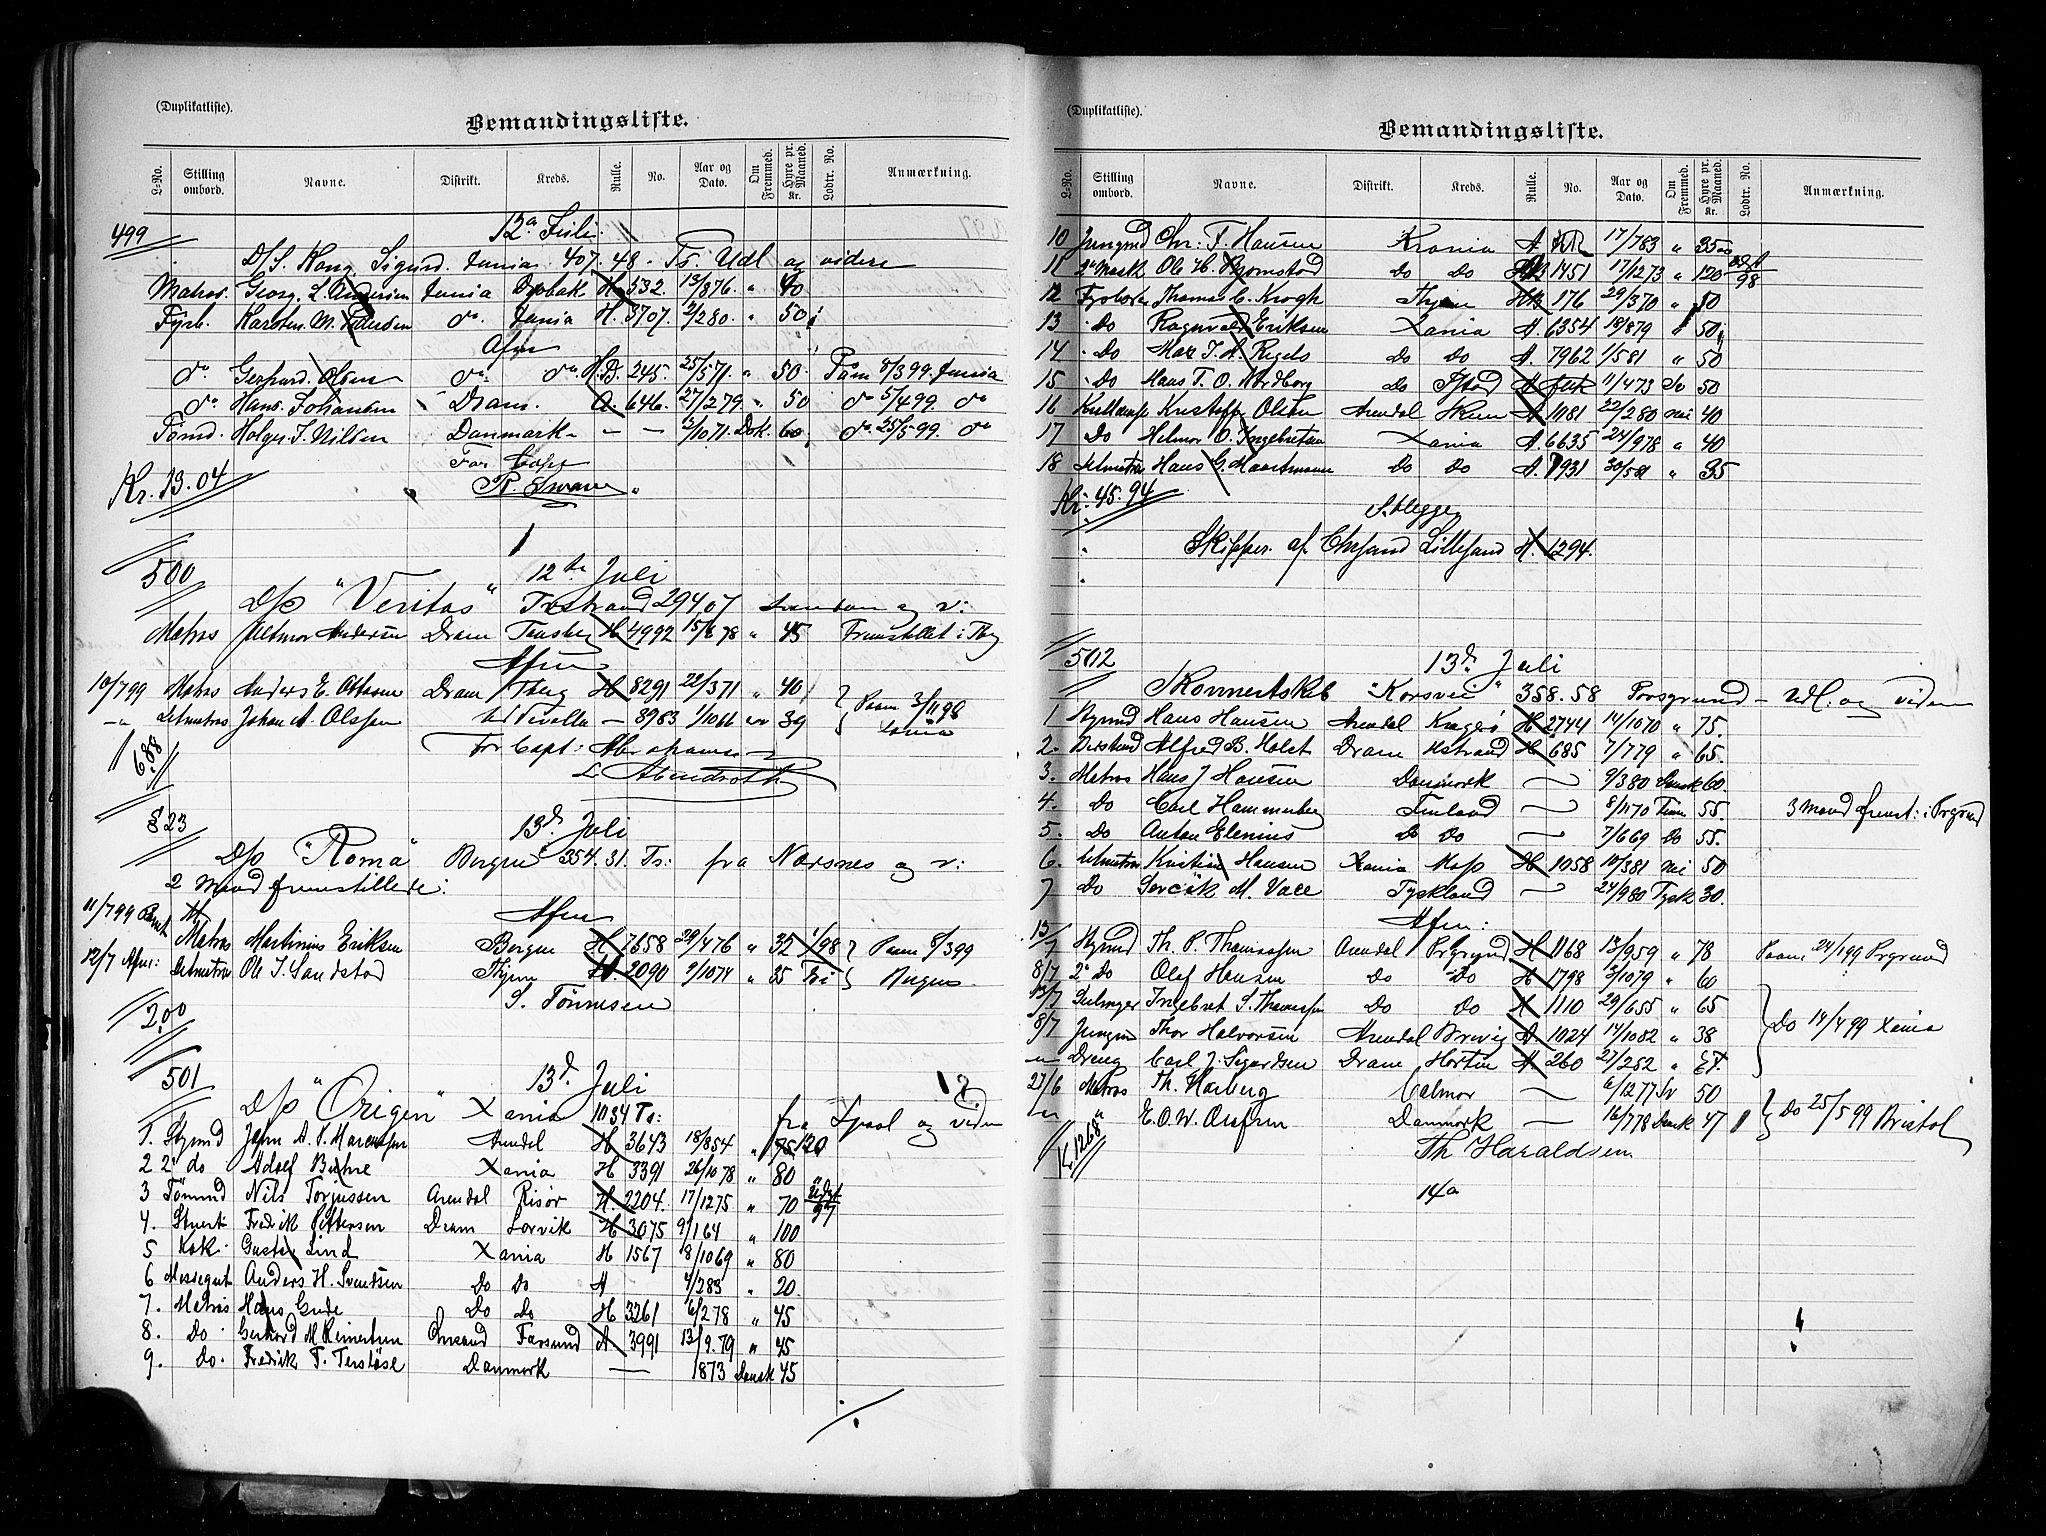 (Duplikatliste).
Bemandingsliste.
L-No. Stilling ombord. Navne. Distrikt. Kreds. Rulle. No. Aar og Dato. Om Fremmed. Hyre pr. Maaned. Kr. Lodtr. No. Anmærkning.
499 12te Juli
D/S. Kong Sigurd. 407.48. Ts. Udl og videre
Matros. Georg. L. Andersen Drøbak H. 532. 13/876. " 40
Fyrb. Karsten. M. Pedersen do. H. 3707. 2/280. " 50
Afm
do Gerhard. Olsen do. do H.B. 245. 25/571. " 50 Paam 8/399.
do Hans. Johansen Dram. A. 646. 27/279 " 50 do 5/499. do
Tømd. Holger. J. Nilsen Danmark - - 2/1071. Dsk. 60 do 25/5 99. do
For Capt
Kr. 13.04 R. Svane
500 12te Juli
D/S "Veritas" Tvestrand 294.07 og v:
Matros Hilmar Andersen Dram Tønsberg H 4992 15/8 78 " 45 Fremstillet i Tbg
Afm
10/799 Matros Anders E. Ottersen Dram Tberg H 8291 22/371 " 40 Paam 3/1198
-"- Letmatros Johan A. Olssen - 8983 1/1066 39 Xania
6.88 For Capt: Abrahamsen
L Abendroth
§ 23 13de Juli
D/S "Roma" Bergen 354.31. Ts: fra Nærsnes og v:
2 Mand fremstillede:
Afm
11/799 Matros Martinius Eriksen Bergen H 7658 28/476 " 32 1/98 Paam 8/399
12/7 Afm: Letmatros Ole J. Sandstød H 2090 9/1074 " 35 Fri Bergen
S. Tönnesen
2.00
501 13de Juli
D/S "Origen" Xania 1034 Ts: fra og viden
1. Stymd John A. P. Marcussen Arendal H 3643 18/854 " 75 120
2 2 do Adolf Xania H 3391 26/1078 " 80
3 Tømmd Nils Torjussen Arendal Risör H. 2204. 17/1275 " 70 Udst 97
4. Stuert Fredrik Pettersen Dram Larvik H 3075 9/164 " 100
5 Kok Gustav Lind Xania H 1567 18/1069 " 80
6 Messegut Anders H. Svendsen Do Do A 4/283 " 20
7. Matros Hans Gude Do Do H 3261 6/278 " 45
8. Do Gerhard M Reinertsen Chrsand Farsund A 3991 13/9.79 " 45
9. Do. Fredrik F. Terslöse Danmark — 1873 Dansk 45
(Duplikatliste).
Bemandingsliste.
L-No. Stilling ombord. Navne. Distrikt. Kreds. Rulle. No. Aar og Dato. Om Fremmed. Hyre pr. Maaned. Kr. Lodtr. No. Anmærkning.
10 Jungmd Chr: F. Hansen Krania A 17/783 " 35
11 2 Mask Ole H. Bjørnstad Do Do 1451 17/1273 " 120 Udst 98
12 Fyrböter Thomas C. Krogh 176 29/370 " 50
13 Do Ragnvald Eriksen Xania A. 6354 18/879 " 50
14 Do Max J. A. Regels Do Do A. 7962 1/581 " 50
15 Do Hans T. O. Nordborg Do A 11/473 50
16 Kullemp Kristoffer Olsen Arendal Skien A 1081 22/280 nei 40
17 Do Helmer O. Ingebretsen Xania A. 6635 24/978 " 40
18 Letmatros Hans G. Maartmann Do Do A. 7931 30/581 " 35
Kr: 45.94
Skipper. af Chrsand Lillesand H. 1294.
502 13de Juli
Skonnertskib "Korsvei" 358.58 Porsgrund - Udl. og viden
1 Stymd Hans Hansen Arendal Kragerö H 2744 14/1070 " 75.
2. Alfred B. Holst Dram H 685 7/779 " 65.
3. Matros Hans J Hansen Danmark — 9/380 Dansk 60.
4. Do Carl Hammerberg Finland — 8/1170 Finn 55. 3 Mand fremst: i Prgrund
5. Do Anton Elenius Do Do — 7/669 Do 55.
6. Letmatros Kristian Hansen Xania Moss H 1058 10/381 nei 50
7 Do M. Vall Tyskland — 24/980 Tysk 30.
Afm:
13/7 Stymd Th. P. Thomassen Arendal Prgrund H 1168 13/959 " 78 Paam 24/199 Prgrund
8/7 2 Do Olaf Hansen Do Do H 1798 2/1079 " 60
13/7 Seilmager Ingebret S. Thomassen Do Do H 1110 29/655 " 65
8/7 Jungm Thor Halvorsen Arendal Brevig A 1024 14/1082 " 38 Do 14/4 99 Xania
-"- Dreng Carl J. Sigurdsen Dram Horten A 260 27/282 "
27/6 Matros Th. Harberg Calmar — 6/1277 Sv 50
-"- " E. O. W. Danmark — 16/778 Dansk 47 Do 25/5 99 Bristol
Kr 12.68 Th Haraldsen
14a